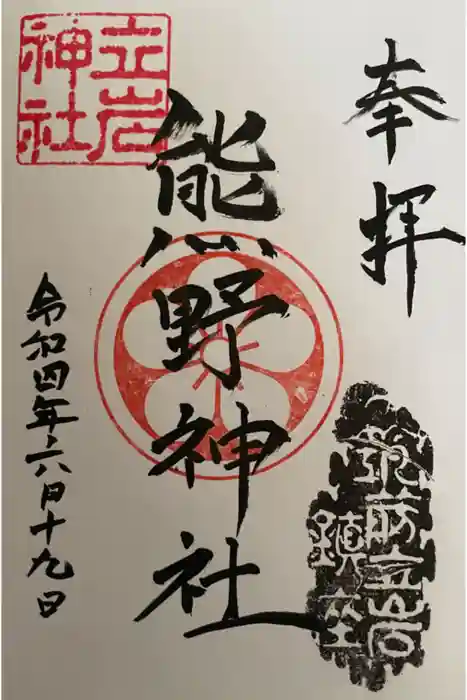 奉拝
筑前立岩
鎮座
熊野神社
立岩
神社
令和四年六月十九日